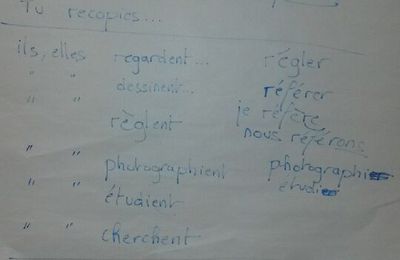 Tu recopies...
ils, elles regardent... régler
" " dessinent... référer
" " règlent je réfère
nous référons
" " photographient photographie
" " étudient étudie
" " cherchent